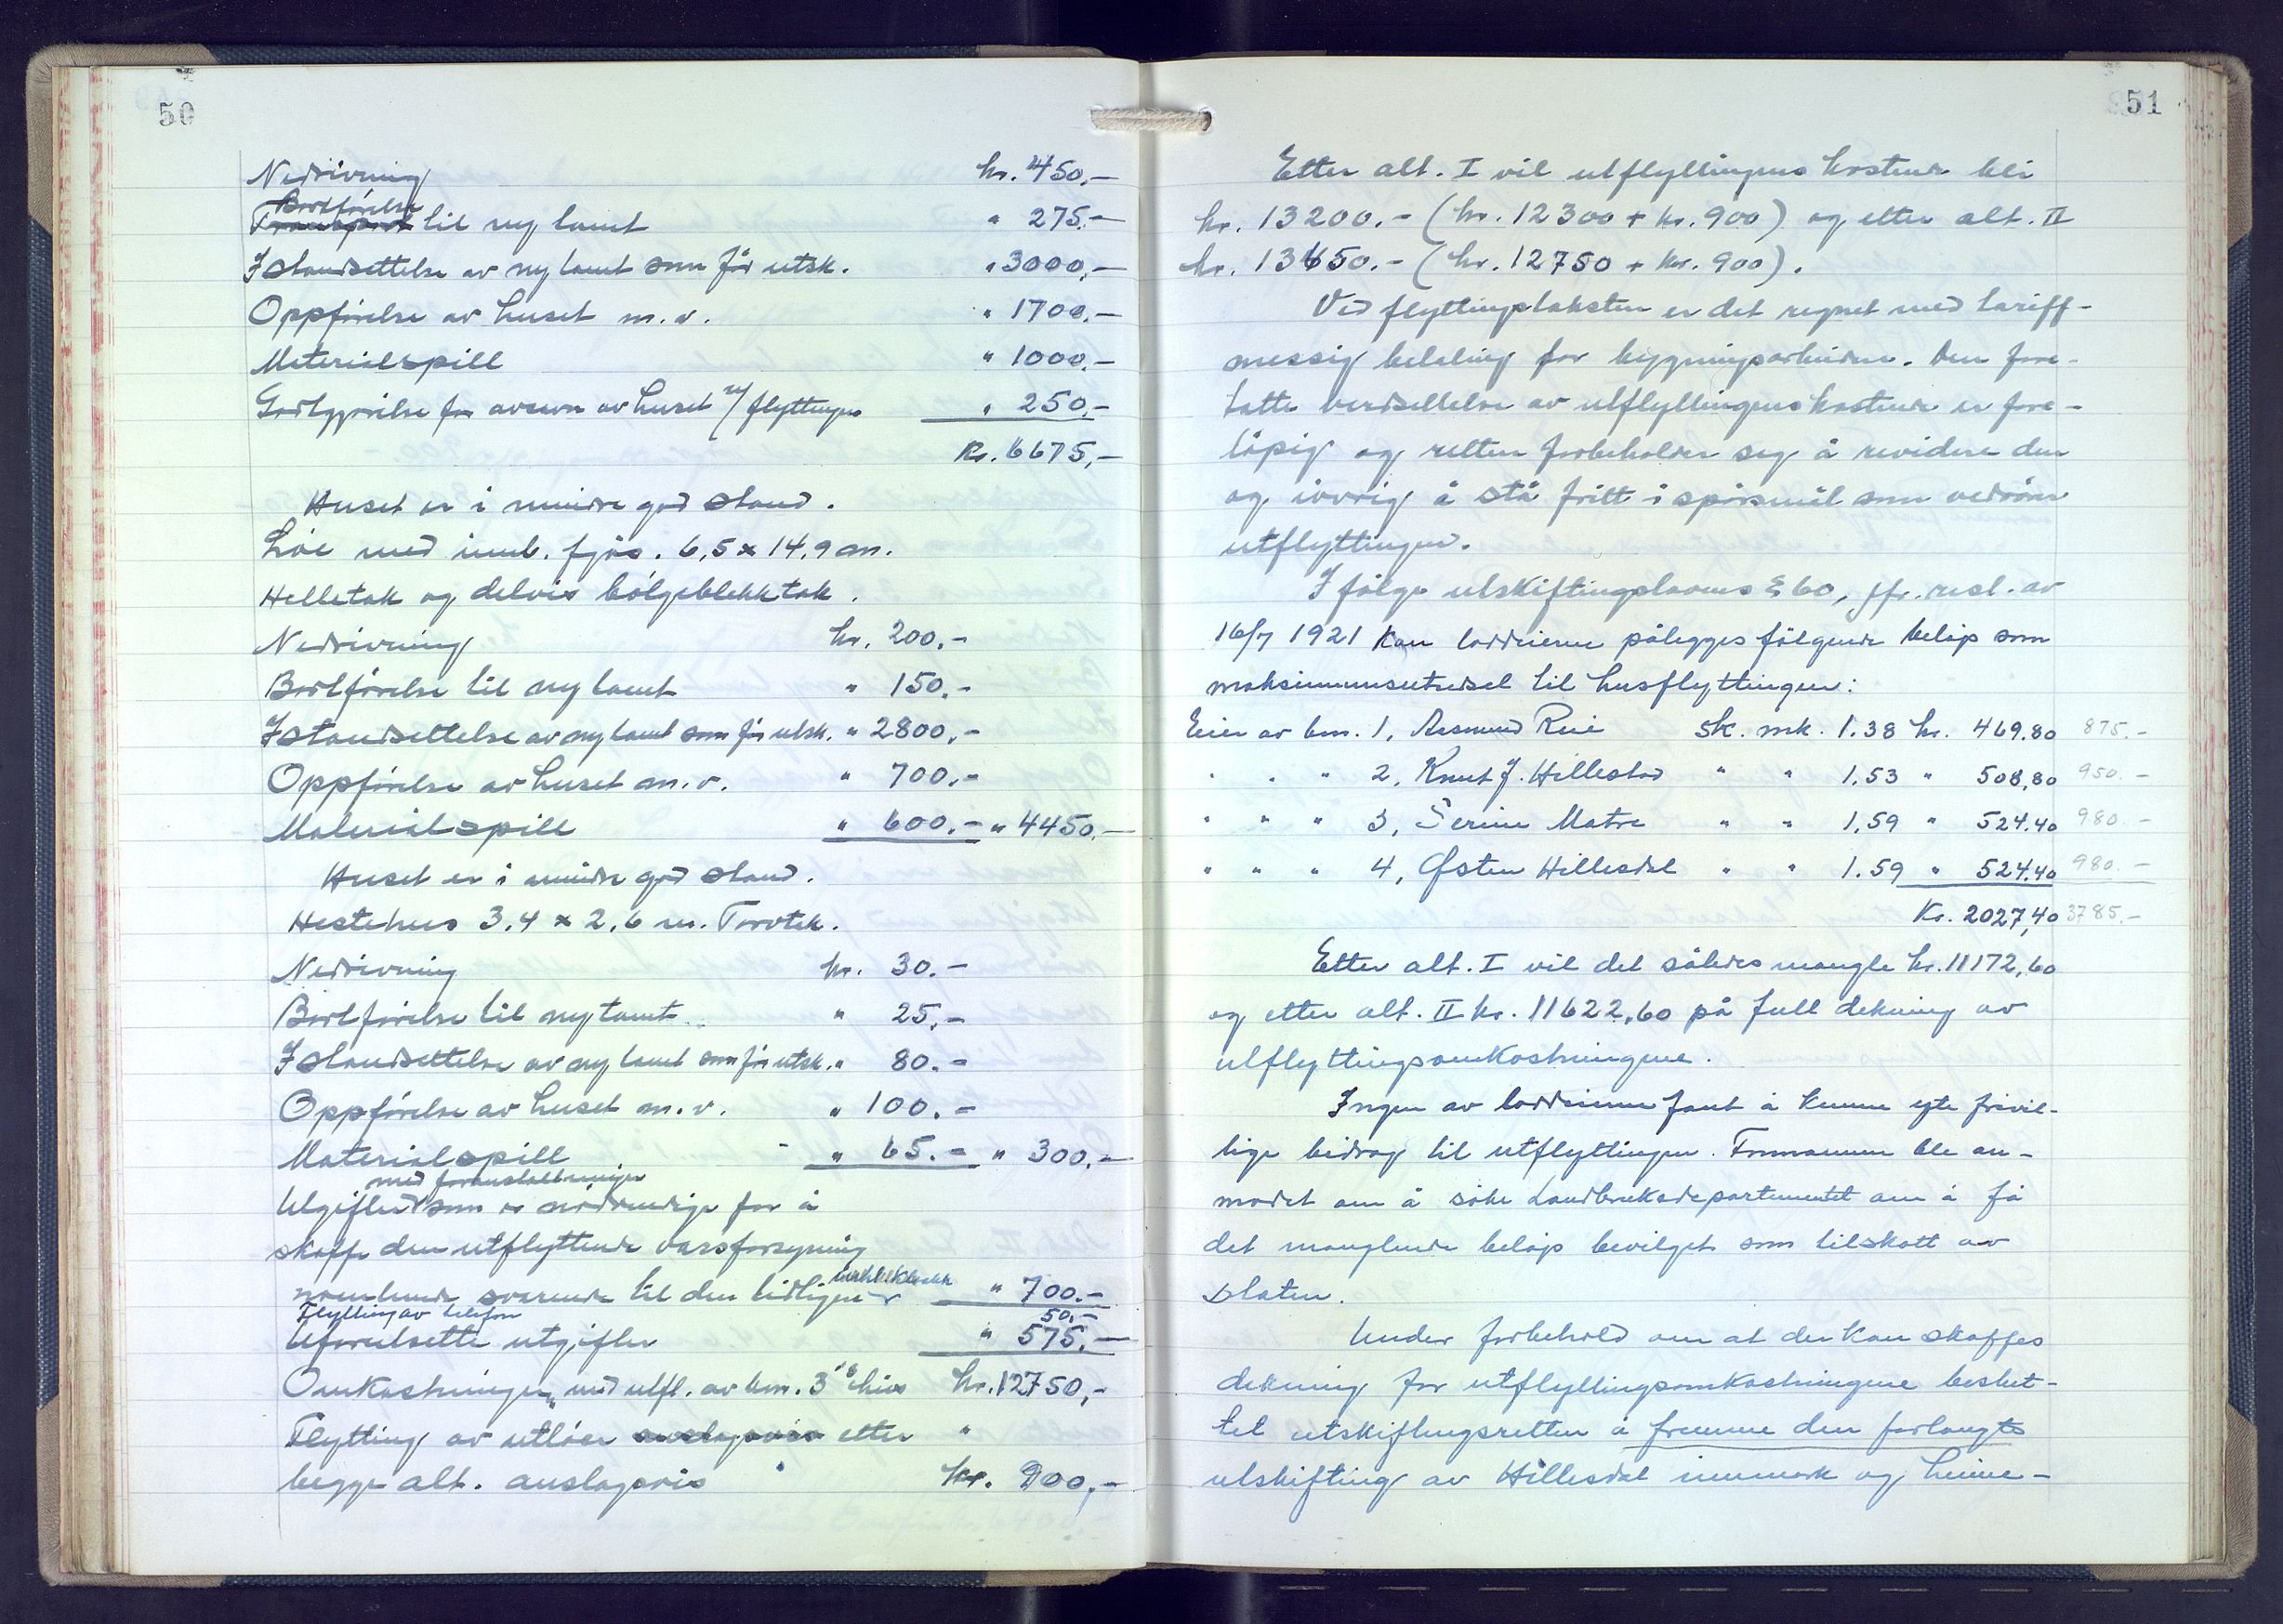 50
Nedrivning kr. 450,-
Bortførelse
Transport til ny tomt " 275.-
Istandsettelse av ny tomt som før utsk. " 3000,-
Oppførelse av huset m.v. " 1700,-
Materialspill " 1000,-
Godtgjørelse for avsavn av huset u/ flyttingen " 250,-
Kr. 6675,-
Huset er i mindre god stand.
Løe med innb. fjøs. 6,5 x 14,9 m.
Helletak og delvis bølgeblekktak.
Nedrivning kr. 200,-
Bortførelse til ny tomt " 150.-
Istandsettelse av ny tomt som før utsk. " 2800,-
Oppførelse av huset m.v. " 700,-
Materialspill " 600,- " 4450,-
Huset er i mindre god stand.
Hestehus 3,4 x 2,6 m. Torvtak.
Nedrivning kr. 30.-
Bortførelse til ny tomt " 25,-
Istandsettelse av ny tomt som før utsk. " 80.-
Oppførelse av huset m.v. " 100.-
Materialspill " 65.- " 300.-
med foranstaltninger
Utgifter som er nødvendige for å
skaffe den utflyttende vassforsyning
noenlunde svarende til den tidligere " 700.-
Flytting av telefon 50.-
Uforutsette utgifter " 575.-
Omkostningene ved utfl. av bnr. 3's hus kr. 12750,-
Flytting av utløer anslagsvis etter "
begge alt. anslagsvis kr. 900,-
51
Etter alt. I vil utflyttingens kostende bli
kr. 13200.- (kr. 12300 + kr. 900) og etter alt. II
kr. 13650.- (kr. 12750 + kr. 900).
Ved flyttingstaksten er det regnet med tariff-
messig betaling for bygningsarbeidere. Den fore-
tatte verdsettelse av utflyttingens kostende er fore-
løpig og retten forbeholder seg å revidere den
og iøvrig å stå fritt i spørsmål som vedrører
utflyttingen.
I følge utskiftingslovens § 60, jfr. resl. av
16/7 1921 kan loddeierne pålegges følgende beløp som
maksimumsutredsel til husflyttingen:
Eier av bnr. 1, Assmund Reie sk. mk. 1.38 kr. 469.80 875.-
" " " 2, Knut J. Hillestad " " 1,53 " 508,80 950.-
" " " 3, Serine Matre " " 1,59 " 524.40 980.-
" " " 4, Østen Hillesdal " " 1.59 " 524.40 980.-
Kr. 2027,40 3785.-
Etter alt. I vil det således mangle kr. 11172,60
og etter alt. II kr. 11622,60 på full dekning av
utflyttingsomkostningene.
Ingen av loddeierne fant å kunne yte frivil-
lige bidrag til utflyttingen. Formannen ble an-
modet om å søke Landbruksdepartementet om å få
det manglende beløp bevilget som tilskott av
staten.
Under forbehold om at der kan skaffes
dekning for utflyttingsomkostningene beslut-
tet utskiftingsretten å fremme den forlangte
utskifting av Hillesdal innmark og heime-